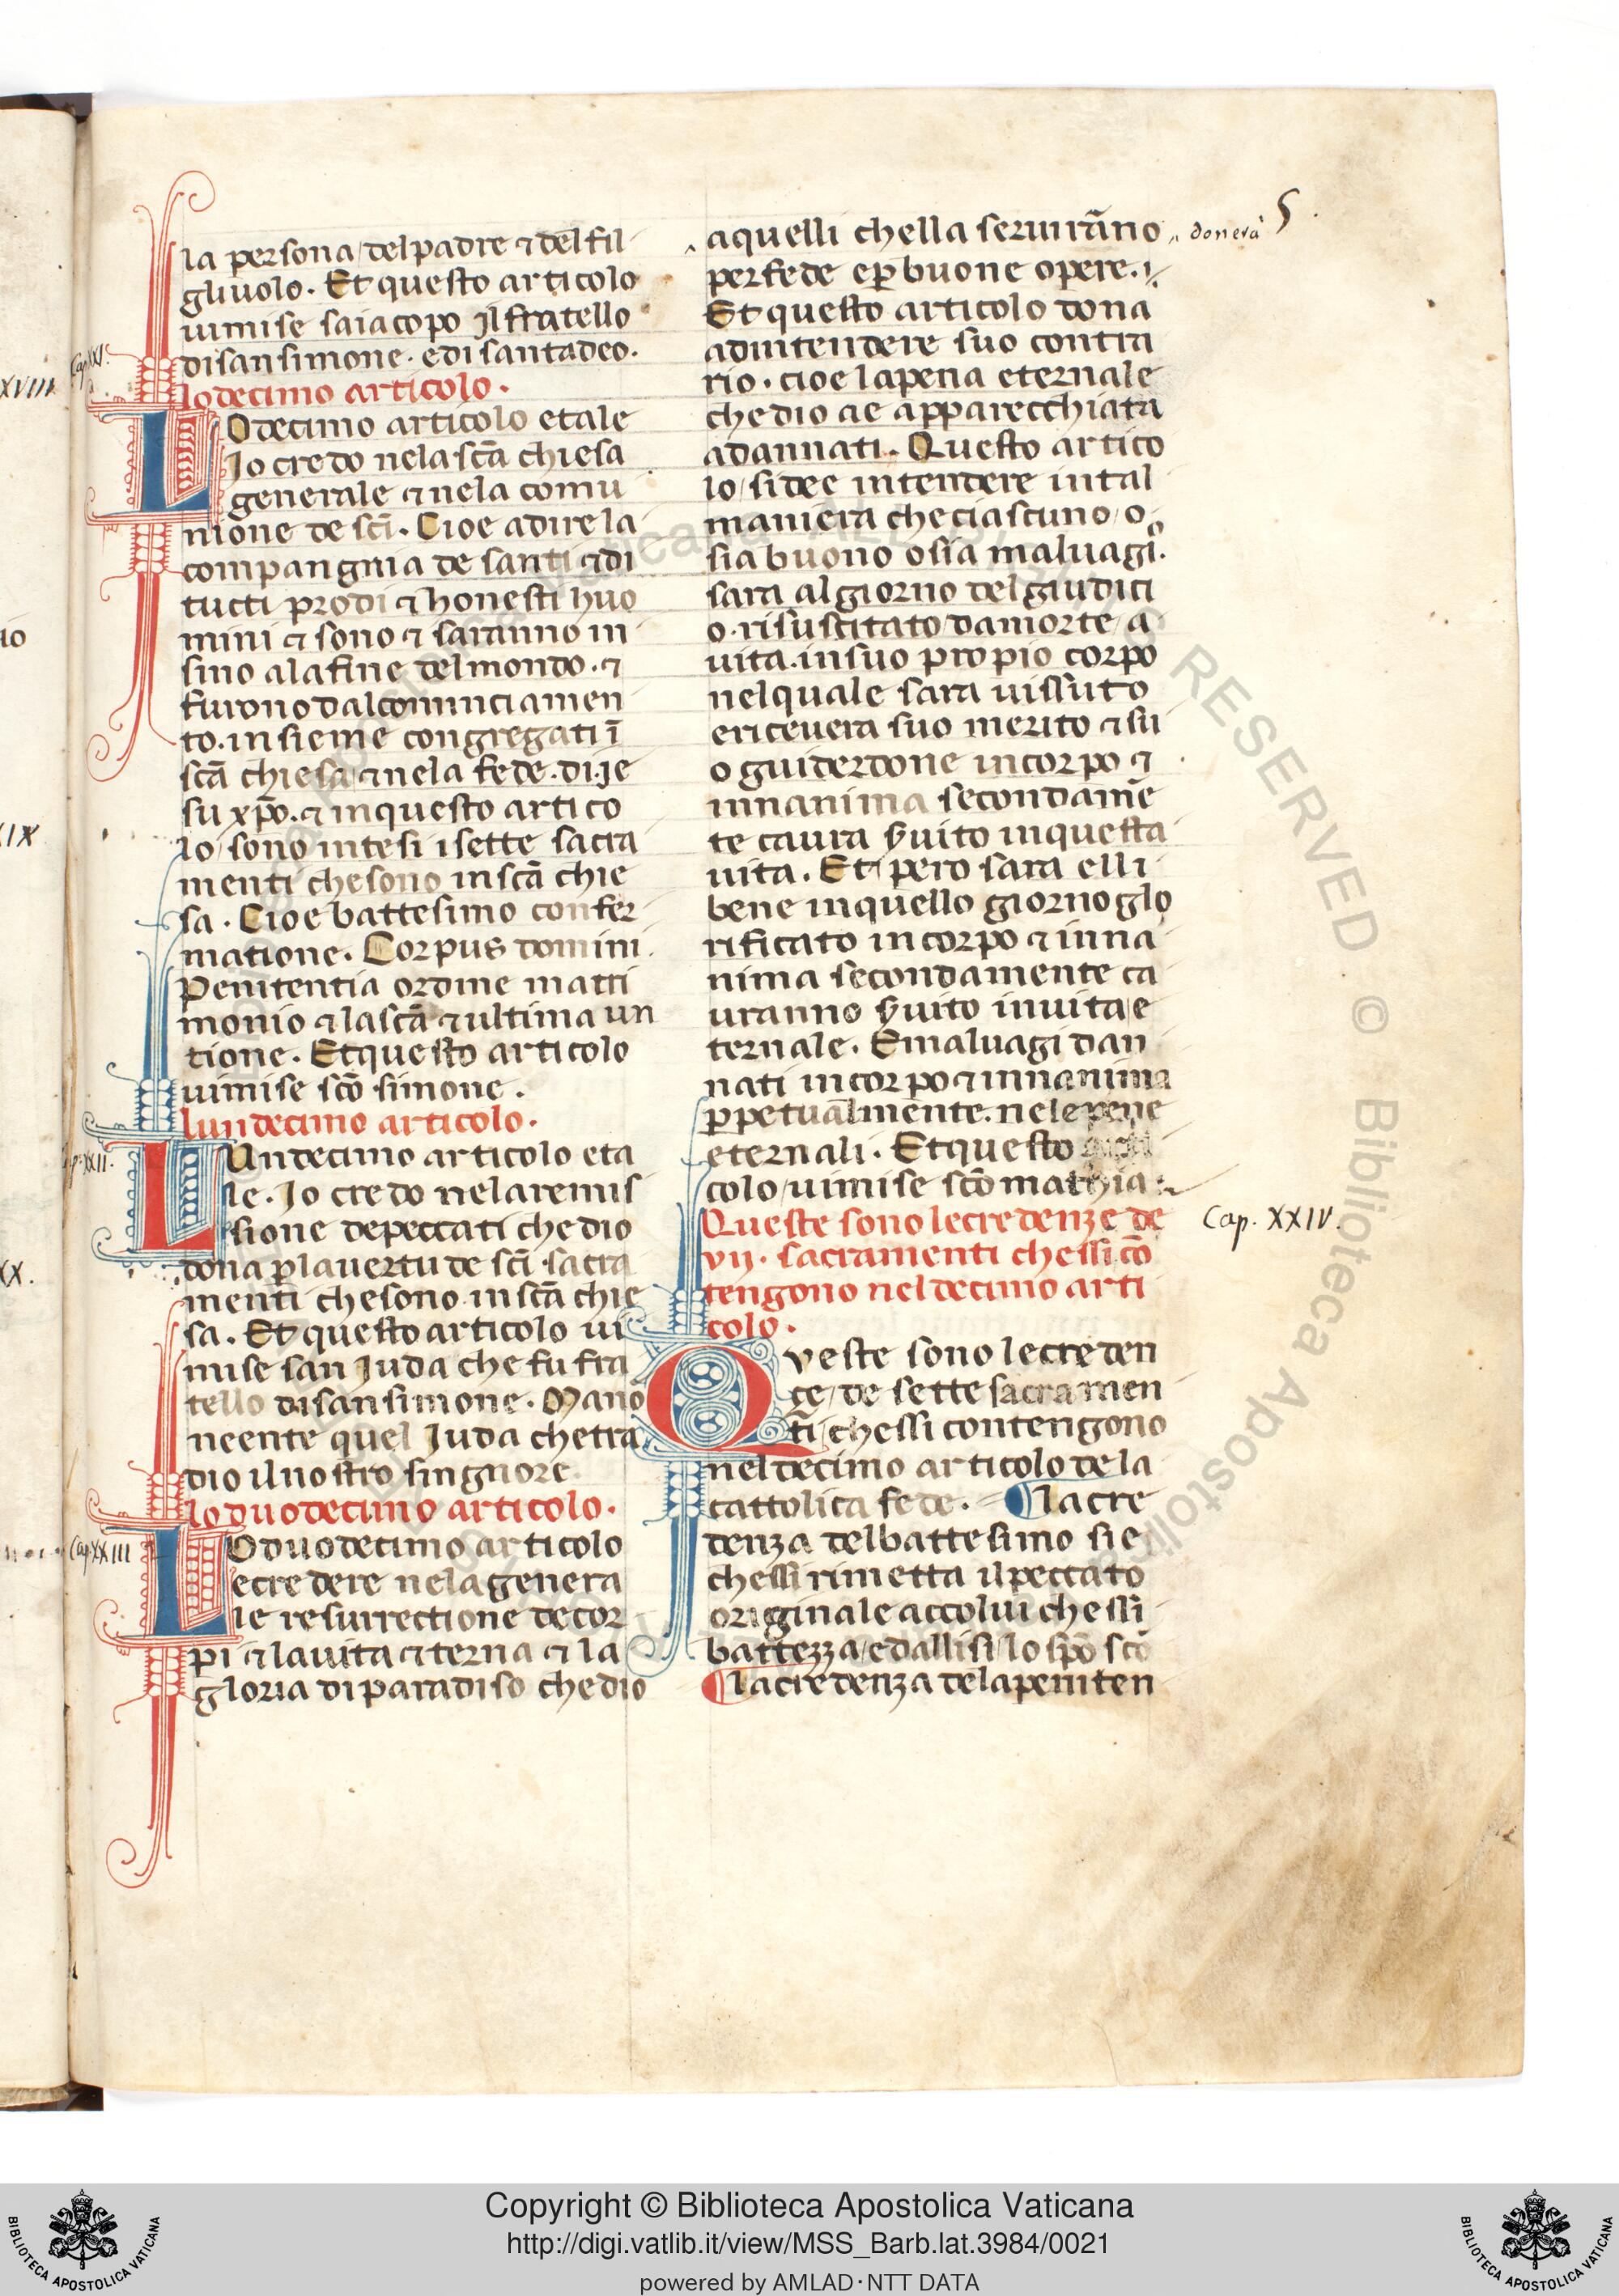 5.
la persona/delpadre ⁊ delfil
gliuolo. Et questo articolo
uimise saiacopo jlfratello
disansimone. edi santadeo.
Cap. XXI.
lodecimo articolo.
LOdecimo articolo etale
Jo credo nela scā chiesa
generale ⁊ nela comu
nione de scī. Cioe adirela
compangnia de santi ⁊di
tucti prodi ⁊ honesti huo
mini ⁊ sono ⁊ saranno in
sino alafine delmondo. ⁊
furono dalcominciamen
to. insieme congregati ī
scā chiesa ⁊ nela fede. di. je
su xp̄o. ⁊ inquesto artico
lo/ sono intesi i sette sacra
menti chesono inscā chie
sa. Cioe battesimo confer
matione. Corpus domini.
Penitentia ordine matri
monio ⁊ lascā ⁊ ultima un
tione. Etquesto articolo
uimise scō simone.
lundecimo articolo.
LUndecimo articolo eta
le. Jo credo nelaremis
sione depeccati chedio
dona ꝑlauertu de scī sacra
menti chesono inscā chie
sa. Et questo articolo ui
mise san Juda che fu fra
tello disansimone. Manō
neente quel Juda chetra
dio ilnostro singnore
loduodecimo articolo.
Cap XXIII
LOduodecimo articolo
ecredere nelagenera
le resurrectione decor
pi ⁊ lauita ⁊terna ⁊ la
gloria diparadiso chedio
aquelli chella seruirāno donerà
perfede eꝑ buone opere.
Et questo articolo dona
adintendere suo contra
rio. cioe lapena eternale
chedio ae apparecchiata
adannati. Questo artico
lo/ sidee intendere intal
maniera checiascuno/ o
sia buono osia maluagi.
sara algiorno delgiudici
o. risuscitato damorte/ a
uita. insuo propio corpo
nelquale sara uissuto
ericeuera suo merito ⁊ su
o guiderdone incorpo ⁊
innanima secondamē
te caura ẜuito inquesta
uita. Et pero sara elli
bene inquello giorno glo
rificato incorpo ⁊ inna
nima secondamente ca
uranno ẜuito inuita e
ternale. Emaluagi dan
nati incorpo ⁊ innanima
ꝑpetualmente. nelepene
eternali. Etquesto
colo/ uimise scō mathia.
Cap. XXIV.
Queste sono lecredenze de
vij. sacramenti chessi cō
tengono neldecimo arti
colo.
Queste sono lecreden
çe/ de sette sacramen
ti/ chessi contengono
neldecimo articolo dela
cattolica fede. ¶ lacre
denza delbattesimo sie
chessi rimetta ilpeccato
originale accolui chessi
battezza/ edallisi/ lo sp̄o scō
¶ lacredenza delapeniten
BIBLIOTECA APOSTOLICA VATICANA
Copyright © Biblioteca Apostolica Vaticana
http://digi.vatlib.it/view/MSS_Barb.lat.3984/0021
powered by AMLAD·NTT DATA
BIBLIOTECA APOSTOLICA VATICANA